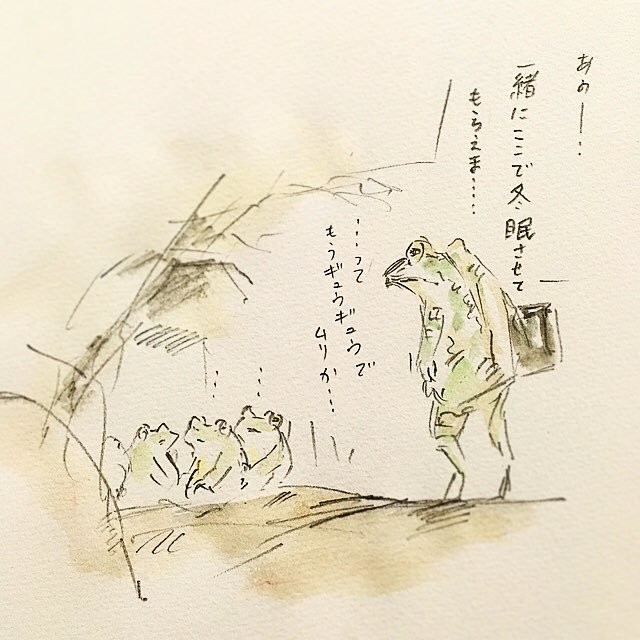 あのー…
一緒にここで冬眠させて
もらえま……
…って
もうギュウギュウで
ムリか…
…
…